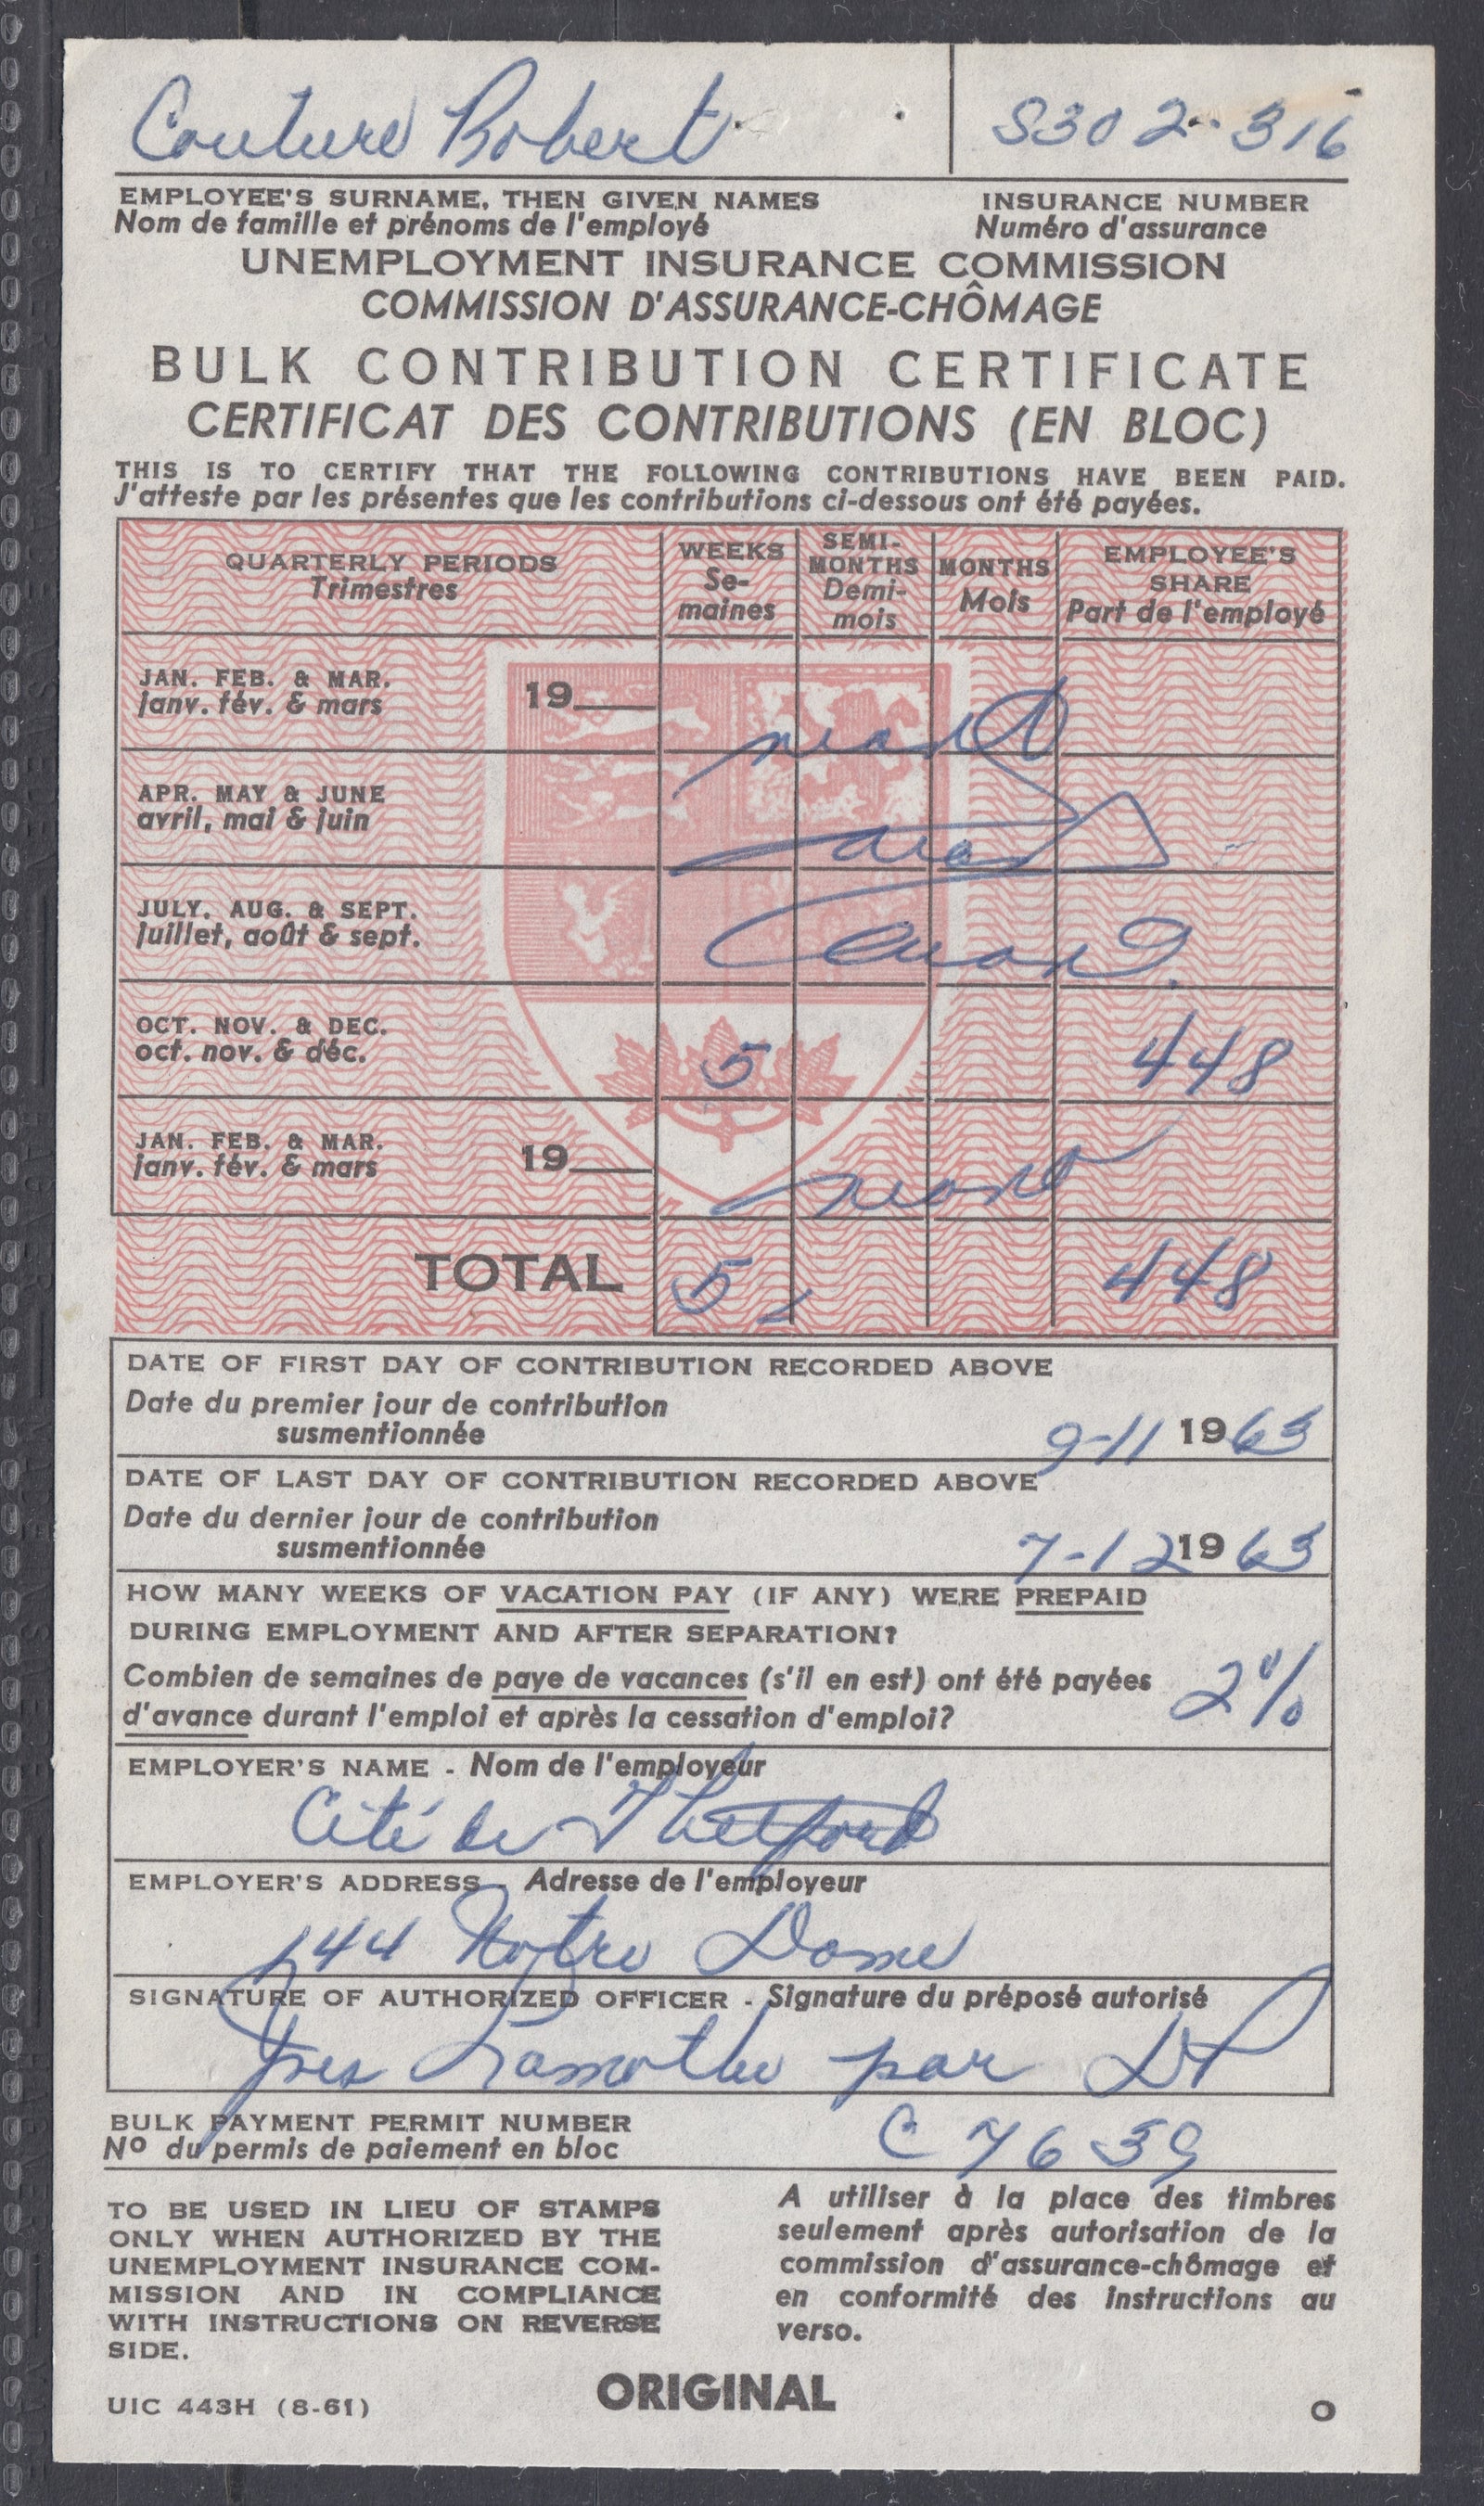 Couture Robert S302-316
EMPLOYEE'S SURNAME, THEN GIVEN NAMES INSURANCE NUMBER
Nom de famille et prénoms de l'employé Numéro d'assurance
UNEMPLOYMENT INSURANCE COMMISSION
COMMISSION D'ASSURANCE-CHÔMAGE
BULK CONTRIBUTION CERTIFICATE
CERTIFICAT DES CONTRIBUTIONS (EN BLOC)
THIS IS TO CERTIFY THAT THE FOLLOWING CONTRIBUTIONS HAVE BEEN PAID.
J'atteste par les présentes que les contributions ci-dessous ont été payées.
QUARTERLY PERIODS
Trimestres
WEEKS
Se-
maines
SEMI-
MONTHS
Demi-
mois
MONTHS
Mois
EMPLOYEE'S
SHARE
Part de l'employé
JAN. FEB. & MAR. 19
janv. fév. & mars
néant
APR. MAY & JUNE
avril, mai & juin
JULY. AUG. & SEPT.
juillet, août & sept.
OCT. NOV. & DEC.
oct. nov. & déc.
5 448
JAN. FEB. & MAR. 19
janv. fév. & mars
néant
TOTAL 5 448
DATE OF FIRST DAY OF CONTRIBUTION RECORDED ABOVE
Date du premier jour de contribution
susmentionnée 9-11 1963
DATE OF LAST DAY OF CONTRIBUTION RECORDED ABOVE
Date du dernier jour de contribution
susmentionnée 7-12 1963
HOW MANY WEEKS OF VACATION PAY (IF ANY) WERE PREPAID
DURING EMPLOYMENT AND AFTER SEPARATION?
Combien de semaines de paye de vacances (s'il en est) ont été payées
d'avance durant l'emploi et après la cessation d'emploi?
2%
EMPLOYER'S NAME - Nom de l'employeur
Cité de Thetford
EMPLOYER'S ADDRESS - Adresse de l'employeur
144 Notre Dame
SIGNATURE OF AUTHORIZED OFFICER - Signature du préposé autorisé
Yves Lamothe par
BULK PAYMENT PERMIT NUMBER
Nº du permis de paiement en bloc
C 7639
TO BE USED IN LIEU OF STAMPS
ONLY WHEN AUTHORIZED BY THE
UNEMPLOYMENT INSURANCE COM-
MISSION AND IN COMPLIANCE
WITH INSTRUCTIONS ON REVERSE
SIDE.
A utiliser à la place des timbres
seulement après autorisation de la
commission d'assurance-chômage et
en conformité des instructions au
verso.
UIC 443H (8-61) ORIGINAL O